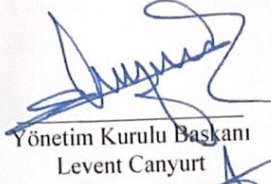 Yönetim Kurulu Başkanı
Levent Canyurt